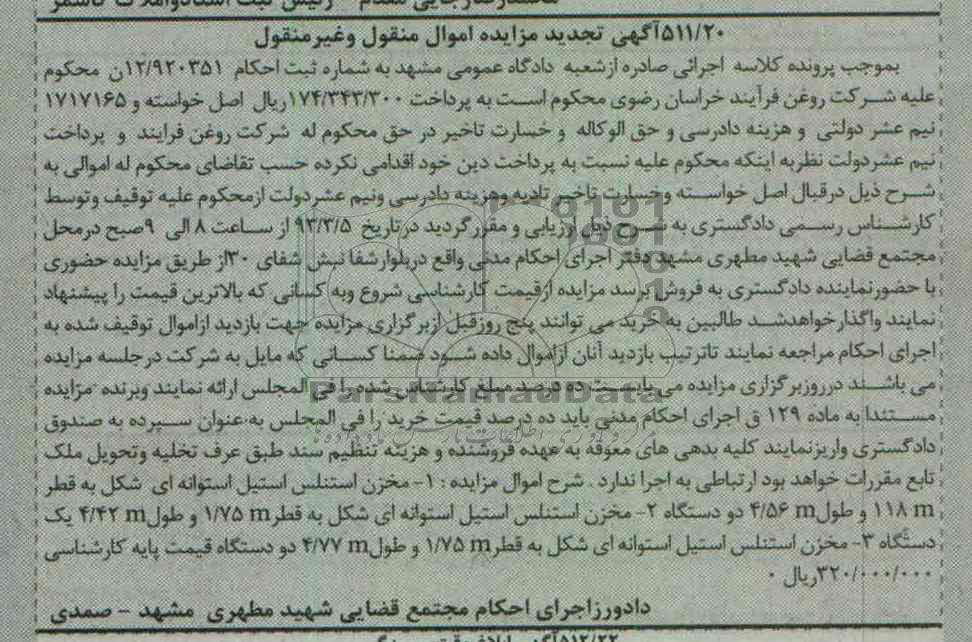 ۵۱۱/۲۰آگهی تجدید مزایده اموال منقول وغیرمنقول
بموجب پرونده کلاسه اجرائی صادره ازشعبه دادگاه عمومی مشهد به شماره ثبت احکام ۱۲/۹۲۰۳۵۱ن محکوم
علیه شرکت روغن فرآیند خراسان رضوی محکوم است به پرداخت ۱۷۴/۳۴۳/۳۰۰ریال اصل خواسته و ۱۷۱۷۱۶۵
نیم عشر دولتی و هزینه دادرسی و حق الوکاله و خسارت تاخیر در حق محکوم له شرکت روغن فرایند و پرداخت
نیم عشردولت نظربه اینکه محکوم علیه نسبت به پرداخت دین خود اقدامی نکرده حسب تقاضای محکوم له اموالی به
شرح ذیل درقبال اصل خواسته وخسارت تاخیر تادیه وهزینه دادرسی ونیم عشردولت ازمحکوم علیه توقیف وتوسط
کارشناس رسمی دادگستری به شرح ذیل ارزیابی و مقررگردید درتاریخ ۹۳/۳/۵ از ساعت ۸ الی ۹صبح درمحل
مجتمع قضایی شهید مطهری مشهد دفتر اجرای احکام مدنی واقع دربلوارشفا نبش شفای ۳۰از طریق مزایده حضوری
با حضورنماینده دادگستری به فروش برسد مزایده ازقیمت کارشناسی شروع وبه کسانی که بالاترین قیمت را پیشنهاد
نمایند واگذارخواهدشد طالبین به خرید می توانند پنج روزقبل ازبرگزاری مزایده جهت بازدید ازاموال توقیف شده به
اجرای احکام مراجعه نمایند تاترتیب بازدید آنان ازاموال داده شود ضمنا کسانی که مایل به شرکت درجلسه مزایده
می باشند درروزبرگزاری مزایده می بایست ده درصد مبلغ کارشناسی شده را فی المجلس ارائه نمایند وبرنده مزایده
مستندا به ماده ۱۲۹ ق اجرای احکام مدنی باید ده درصد قیمت خرید را فی المجلس به عنوان سپرده به صندوق
دادگستری واریزنمایند کلیه بدهی های معوقه به عهده فروشنده و هزینه تنظیم سند طبق عرف تخلیه وتحویل ملک
تابع مقررات خواهد بود ارتباطی به اجرا ندارد . شرح اموال مزایده : ۱- مخزن استنلس استیل استوانه ای شکل به قطر
۱۱۸ m و طول۴/۵۶ m دو دستگاه ۲- مخزن استنلس استیل استوانه ای شکل به قطر۱/۷۵ m و طول۴/۴۲ m یک
دستگاه ۳- مخزن استنلس استیل استوانه ای شکل به قطر۱/۷۵ m و طول۴/۷۷ m دو دستگاه قیمت پایه کارشناسی
۳۲۰/۰۰۰/۰۰۰ریال .
دادورزاجرای احکام مجتمع قضایی شهید مطهری مشهد - صمدی
ParsNamadData